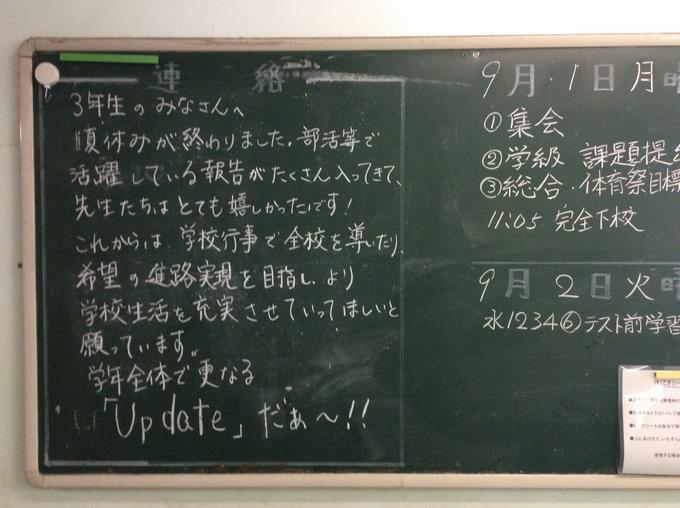 連絡
3年生のみなさんへ
夏休みが終わりました。部活等で
活躍している報告がたくさん入ってきて、
先生たちはとても嬉しかったです!
これからは、学校行事で全校を導いたり、
希望の進路実現を目指し、より
学校生活を充実させていってほしいと
願っています。
学年全体で更なる
「Update」だぁ~!!
9月1日月曜
①集会
②学級 課題提
③総合・体育祭目標
11:05 完全下校
9月2日火曜
水1234⑥テスト前学習